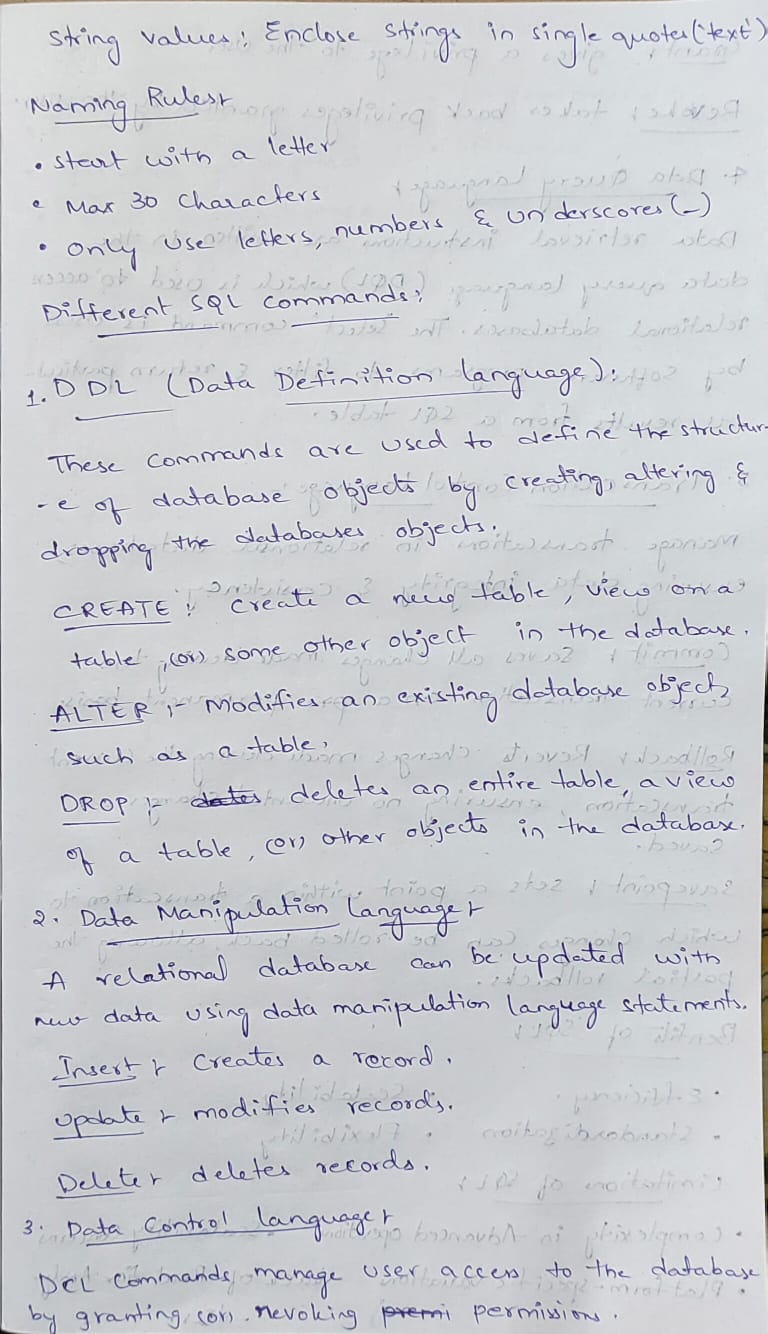 String values: Enclose strings in single quotes ('text')
Naming Rules:-
• start with a letter
• Max 30 characters
• only use letters, numbers & underscores (_)
Different SQL commands:
1. DDL (Data Definition language):
These commands are used to define the structur-
-e of database objects by creating, altering &
dropping the databases objects.
CREATE: Create a new table, view on a
table, (or) some other object in the database.
ALTER :- Modifies an existing database object,
such as a table,
DROP :- dates deletes an entire table, a view
of a table, (or) other objects in the database.
2. Data Manipulation language:-
A relational database can be updated with
new data using data manipulation language statements.
Insert :- Creates a record.
Update :- modifies records.
Delete :- deletes records.
3. Data Control language:-
DCL commands manage user access to the database
by granting (or) revoking premi permissions.